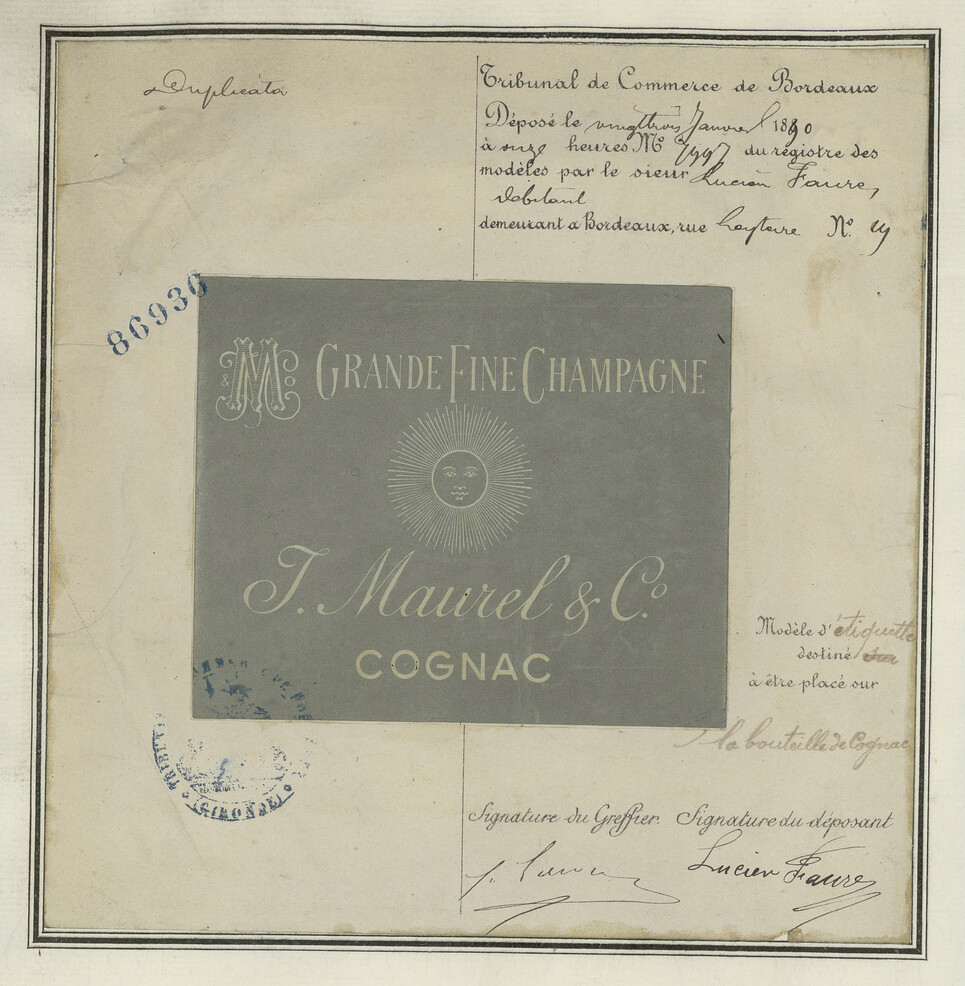 Duplicata
Tribunal de Commerce de Bordeaux
Déposé le vingt trois Janvier 1890
à onze heures No 7997 du registre des
modèles par le sieur Lucien Faure,
débitant
demeurant a Bordeaux, rue No. 19
86936
M & Co
GRANDE FINE CHAMPAGNE
J. Maurel & Co.
COGNAC
Modèle d'étiquette
destiné
à être placé sur
la bouteille de Cognac
TRIBUNAL
(GIRONDE)
Signature du Greffier. Signature du déposant
Lucien Faure